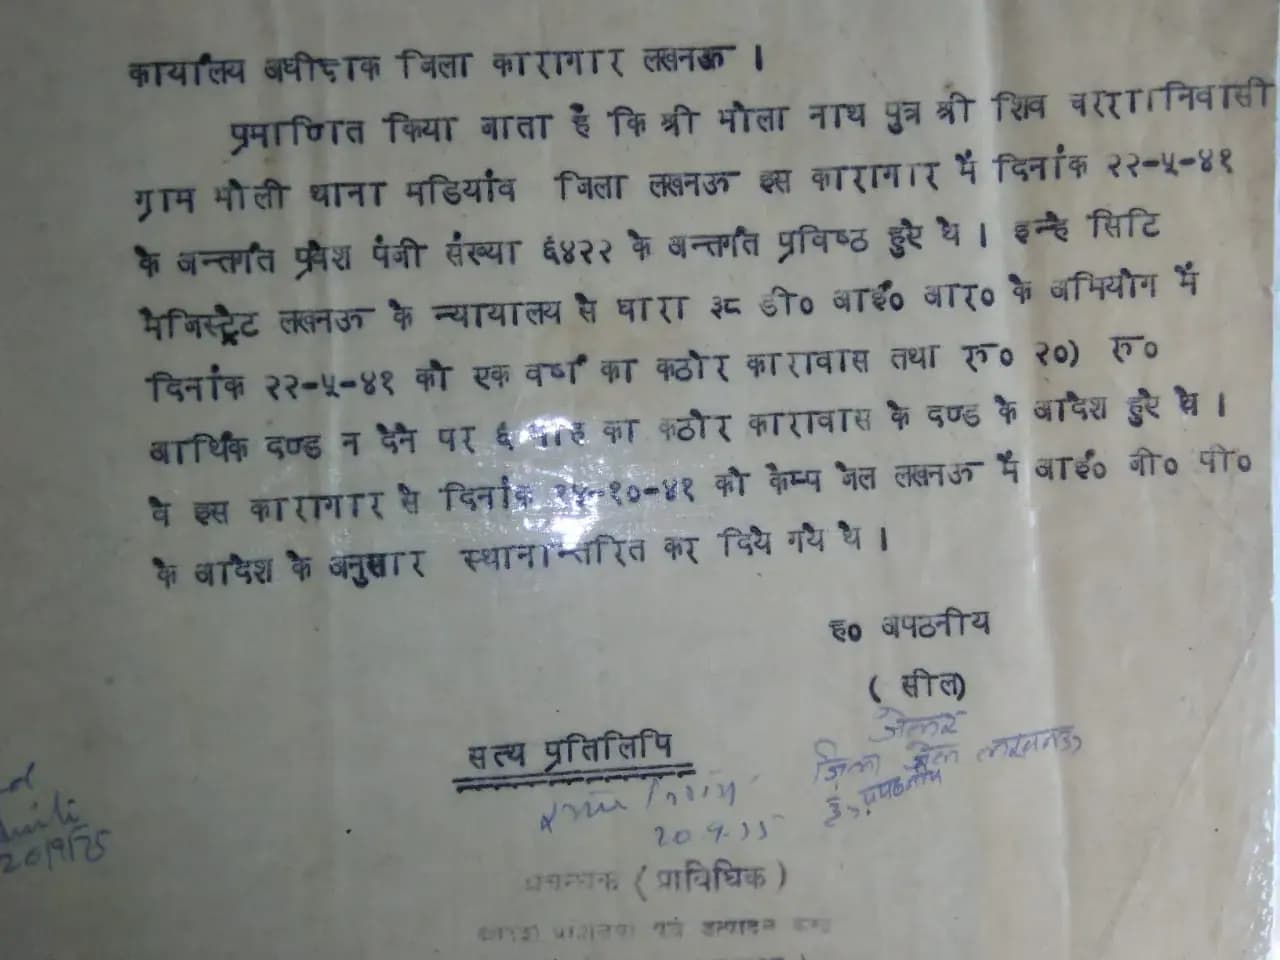 कार्यालय अधीक्षक जिला कारागार लखनऊ ।
प्रमाणित किया जाता है कि श्री भोला नाथ पुत्र श्री शिव चरण। निवासी
ग्राम भौली थाना मडियांव जिला लखनऊ इस कारागार में दिनांक २२-५-४१
के अन्तर्गत प्रवेश पंजी संख्या ६४२२ के अन्तर्गत प्रविष्ठ हुऐ थे । इन्हे सिटि
मेजिस्ट्रेट लखनऊ के न्यायालय से धारा ३८ डी० आई० आर० के अभियोग में
दिनांक २२-५-४१ को एक वर्ष का कठोर कारावास तथा रु० २०) रु०
आर्थिक दण्ड न देने पर ६ माह का कठोर कारावास के दण्ड के आदेश हुऐ थे ।
वे इस कारागार से दिनांक १४-१०-४१ को केम्प जेल लखनऊ में आई० जी० पी०
के आदेश के अनुसार स्थानान्तरित कर दिये गये थे ।
ह० अपठनीय
(सील)
जेलर
जिला जेल लखनऊ
ह० अपठनीय
सत्य प्रतिलिपि
20/9/75
प्रबन्धक (प्राविधिक)